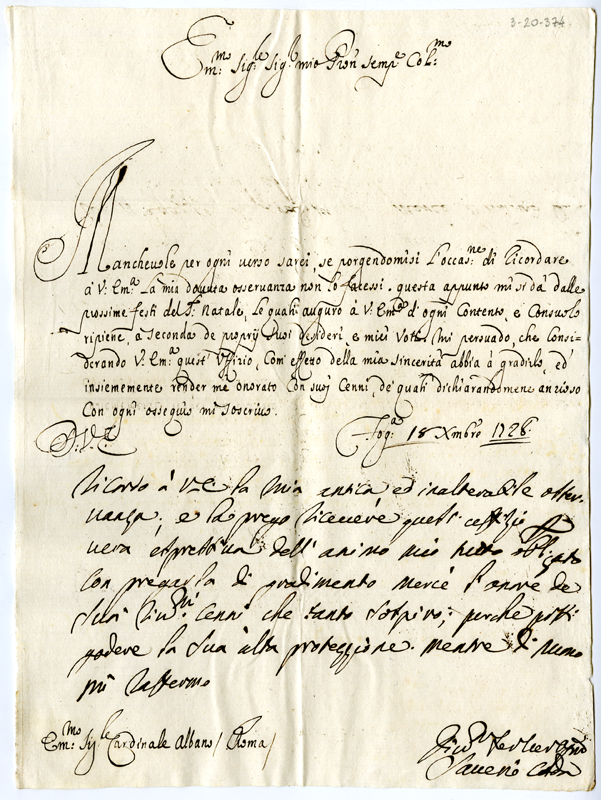 3-20-374
Em:mo Sig:le Sig:r mio Pron Semp:e Col:mo
Manchevole per ogni verso sarei, se porgendomisi l'occas:ne di Ricordare
à V: Em:a La mia dovuta osservanza non lo facessi. questa appunto mi si dà dalle
prossime festi del S: Natale, Le quali auguro à V: Em:a d'ogni Contento, e Consuolo
ripiene, à Seconda de proprij Suoi desideri, e miei Voti. Mi persuado, che Consi-
derando V: Em:a quest'Uffizio, Com'effetto della mia Sincerità abbia à gradirlo, ed
insienemente render me onorato Con Suoj Cenni, de quali dichiarandomene anzioso
Con ogni ossequio mi soscrivo.
D. V. E.
Fog:a 18 Xmbro 1728
Ricordo à V.E. la mia antica ed inalterabile osser-
vanza; e la prego ricevere quest'uffizio
vera espressiva dell'animo mio tutto obligato
Con pregarla di gradimento mercè l'onore de
Suoi Cenni che tanto Sospiro; perche
godere la Sua alta protezzione. mentre di nuovo
mi raffermo
Em:mo Sig:le Cardinale Albano / Roma /
Saverio